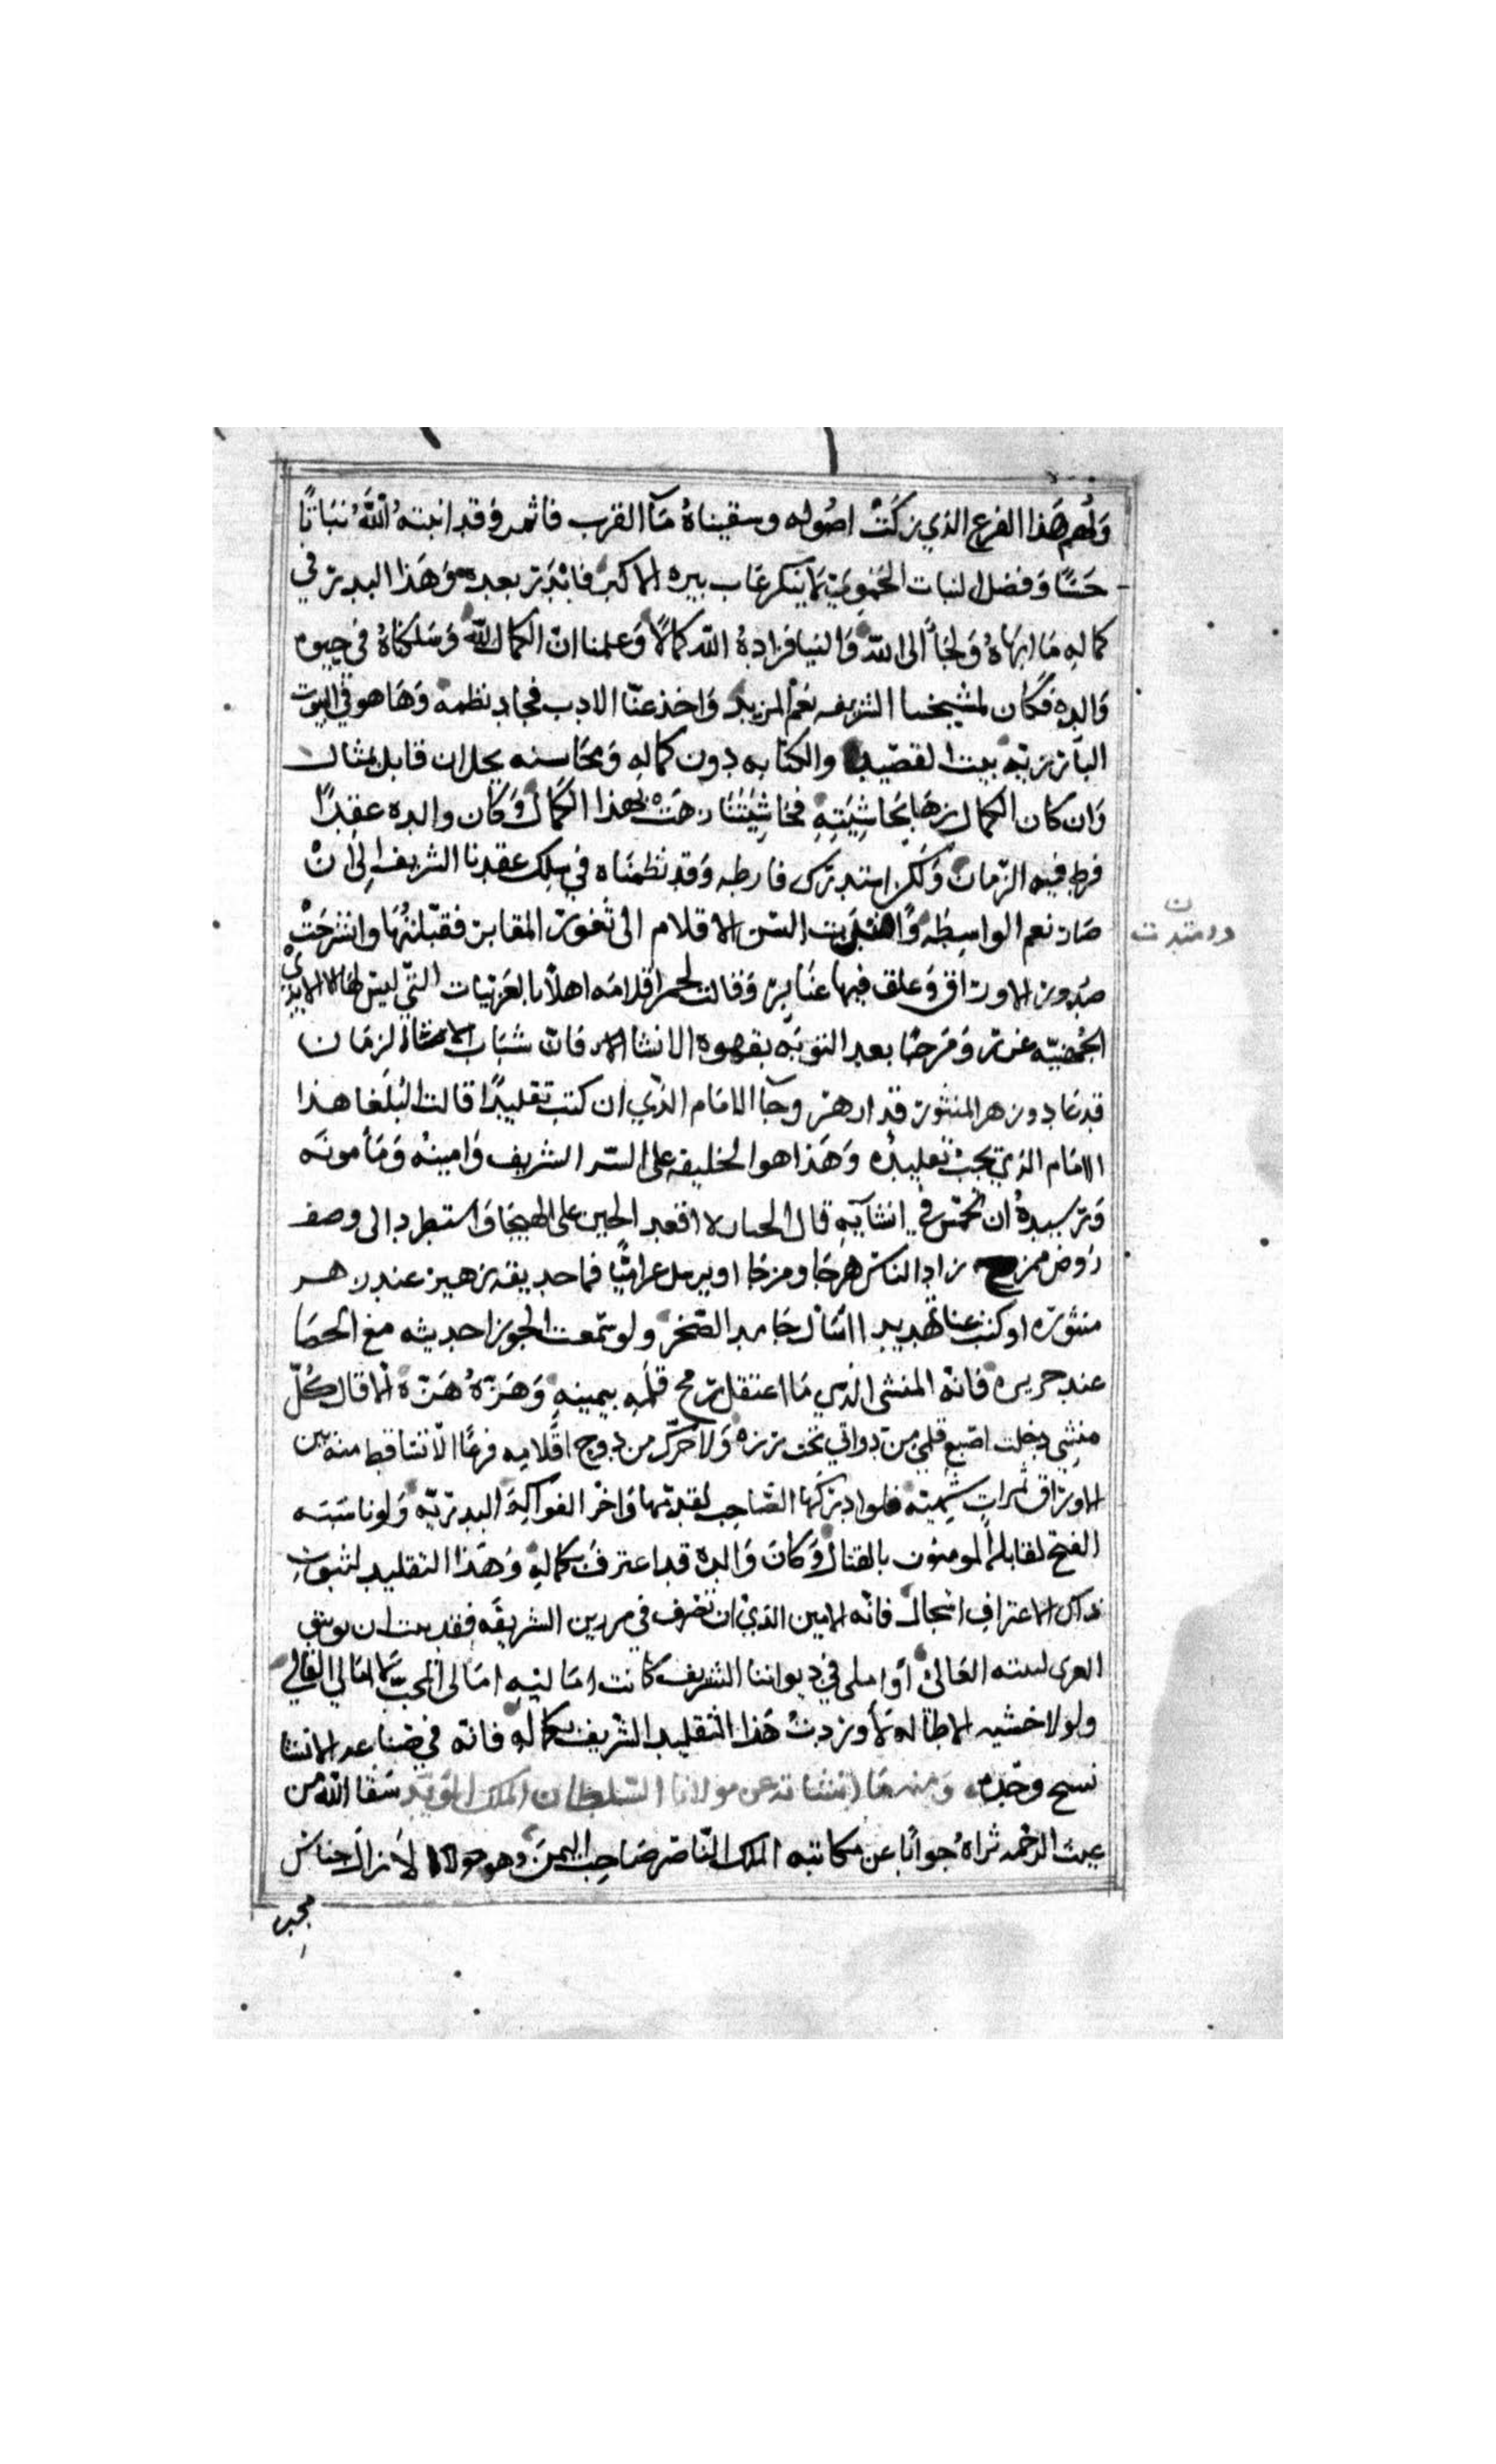 ولهم هذا الفرع الذي زكت اصوله وسقيناه مآ القرب فاثمر وقد انبته الله نباتًا
حسنًا وفضل لنبات الحموي لا ينكر غاب بيره الاكبر فابدر بعده وهذا البدر في
كماله ما ابهاه ولجأ الى الله والينا فزاده الله كمالًا وعلمنا ان الكمال لله وسلكناه في جيوه
والده فكان لمشيخنا الشريفه نعم المريد واخذ عنّا الادب فجاد نظمه وها هو في البيوت
البارزيه بيت القصيد والكتابه دون كماله ومحاسنه يجل ان قابل بمثال
وان كان الكمال زها بحاشيته فحاشيتنا زهت بهذا الكمال وكان والده عقدًا
فرط فيه الزمان ولكن استدرك فارطه وقد نظمناه في سلك عقدنا الشريف الى ان
صار نعم الواسطه وامتدت السن الاقلام الى ثغور المقابر فقبلتها وانشرحت
ن
وامتدت
صدور الاوراق وعلق فيها عنابر وقالت لحمر اقلامه اهلًا بالعربيات التي ليس لها الا الايدي
الجمضيه غرر ومرحبًا بعد التوبه بقهوة الانشا الان فان شباب الانشاة لزمان
قد عاد وزهر المنثور قد ازهر وجآ الامام الذي ان كتب تقليدًا قالت البلغا هذا
الامام الذي يجب تقليده وهذا هو الخليفه على السر الشريف وامينه ومأمونه
ورسيده ان تحمس في انشآيه قال الجبان لا اقعد الجبن على الهيجا واستطرد الى وصف
روض ممزج زاد الناس هرجا ومزجا او يرسل عراميًا فما حديقة زهير عند زهر
منثوره او كتب عنا تهديدا اسال جامد الصخر ولو سمعت الجوزا حديثه مع الحصا
عند حريره فانه المنشي الذي ما اعتقل رمح قلمه بيمينه وهزه هزة الا قال كل
منشي دخلت اصبع قلمي من دواتي تحت رزه ولا حرك من دوح اقلامه فرعًا الا تتساقط منه بين
الاوراق ثمرات شهيته فلو ادركها الصاحب لقدمها واخر الفواكه البدريه ولو ناسبته
الفتح لقابله المومنون بالقتال وكان والده قد اعترف بكماله وهذا التقليد لثبوت
ذاك الاعتراف اسجال فانه الامين الذي ان تصرف في الشريفه فقد
العالي او املى في ديواننا الشريف كانت اماليه امالي المحب لا امالي القالي
ولولا خشيه الاطاله لأوردت هذا التقليد الشريف بكماله فانه في صناعه الانشا
نسيج وحده ومنه ما انشاته عن مولانا السلطان الملك المؤيد سقا الله من
غيث الرحمه ثراه جوابًا عن مكاتبه الملك الناصر صاحب اليمن وهو لا زال جناس